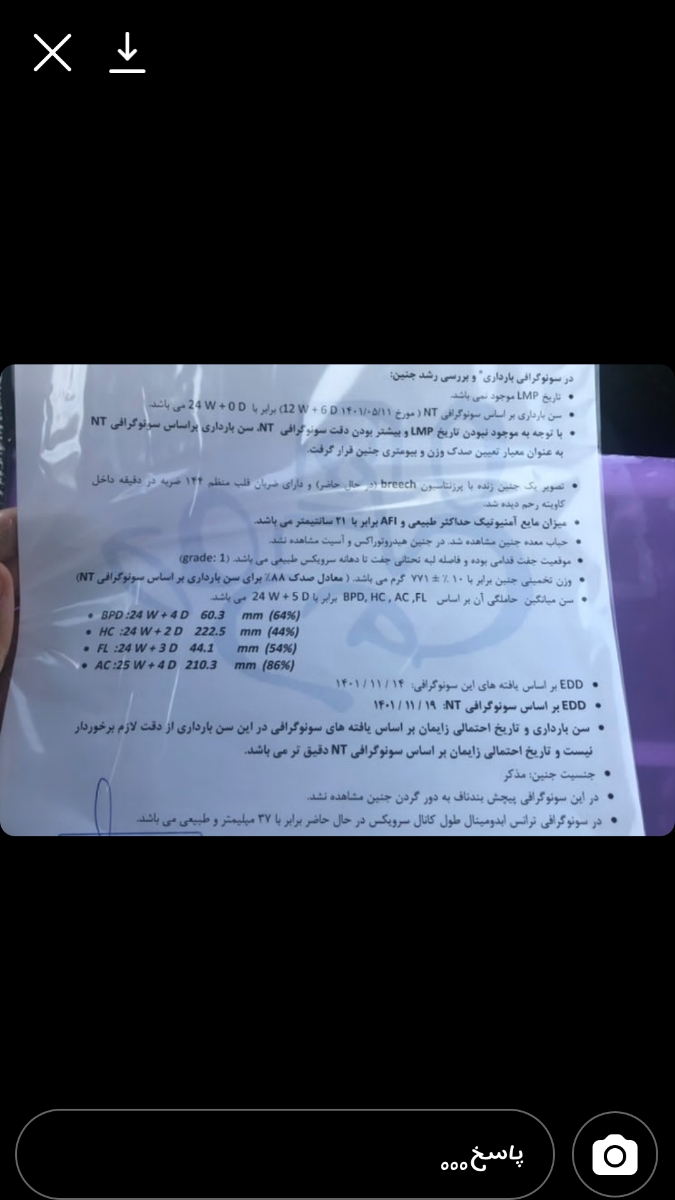 در سونوگرافی بارداری و بررسی رشد جنین:
• تاریخ LMP موجود نمی باشد.
• سن بارداری بر اساس سونوگرافی NT ( مورخ ۱۴۰۱/۰۵/۱۱ 12 W + 6 D) برابر با 24 W + 0 D می باشد.
• با توجه به موجود نبودن تاریخ LMP و بیشتر بودن دقت سونوگرافی NT، سن بارداری براساس سونوگرافی NT
به عنوان معیار تعیین صدک وزن و بیومتری جنین قرار گرفت.
• تصویر یک جنین زنده با پرزنتاسیون breech (در حال حاضر) و دارای ضربان قلب منظم ۱۴۴ ضربه در دقیقه داخل
کاویته رحم دیده شد.
• میزان مایع آمنیوتیک حداکثر طبیعی و AFI برابر با ۲۱ سانتیمتر می باشد.
• حباب معده جنین مشاهده شد. در جنین هیدروتوراکس و آسیت مشاهده نشد.
• موقعیت جفت قدامی بوده و فاصله لبه تحتانی جفت تا دهانه سرویکس طبیعی می باشد. (grade: 1)
• وزن تخمینی جنین برابر با ۱۰٪ ± ۷۷۱ گرم می باشد. ( معادل صدک ۸۸٪ برای سن بارداری بر اساس سونوگرافی NT)
• سن میانگین حاملگی آن بر اساس BPD, HC , AC ,FL برابر با 24 W + 5 D می باشد.
• BPD :24 W + 4 D 60.3 mm (64%)
• HC :24 W + 2 D 222.5 mm (44%)
• FL :24 W + 3 D 44.1 mm (54%)
• AC :25 W + 4 D 210.3 mm (86%)
• EDD بر اساس یافته های این سونوگرافی: ۱۴۰۱ / ۱۱ / ۱۴
• EDD بر اساس سونوگرافی NT: ۱۴۰۱ / ۱۱ / ۱۹
• سن بارداری و تاریخ احتمالی زایمان بر اساس یافته های سونوگرافی در این سن بارداری از دقت لازم برخوردار
نیست و تاریخ احتمالی زایمان بر اساس سونوگرافی NT دقیق تر می باشد.
• جنسیت جنین: مذکر
• در این سونوگرافی پیچش بندناف به دور گردن جنین مشاهده نشد.
• در سونوگرافی ترانس ابدومینال طول کانال سرویکس در حال حاضر برابر با ۳۷ میلیمتر و طبیعی می باشد.
پاسخ...